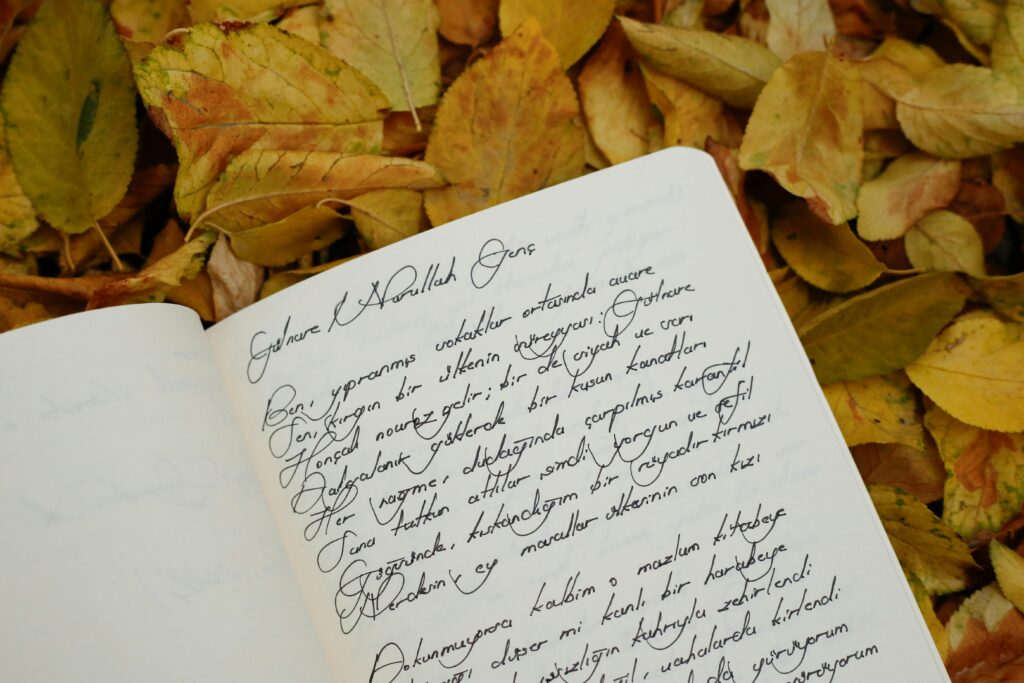 Gülnare / Nurullah Genç
Ben, yıpranmış sokaklar ortasında avare
Sen, kırgın bir ülkenin süreyyası: Gülnare
Honçalı novruz gelir; bir de siyah ve sarı
Dalgalanır göklerde bir kuşun kanatları
Her nağme, dudağında çarpılmış karanfil
Sana tutkun atlılar şimdi yorgun ve sefil
Göğsünde, kıskandığım bir rüyadır kırmızı
Nerdesin ey masallar ülkesinin son kızı
Dokunmuyorsa kalbim o mazlum kitabeye
düşer mi kanlı bir harabeye
kahrıyla zehirlendi
vahalarda kirlendi
yürüyorum